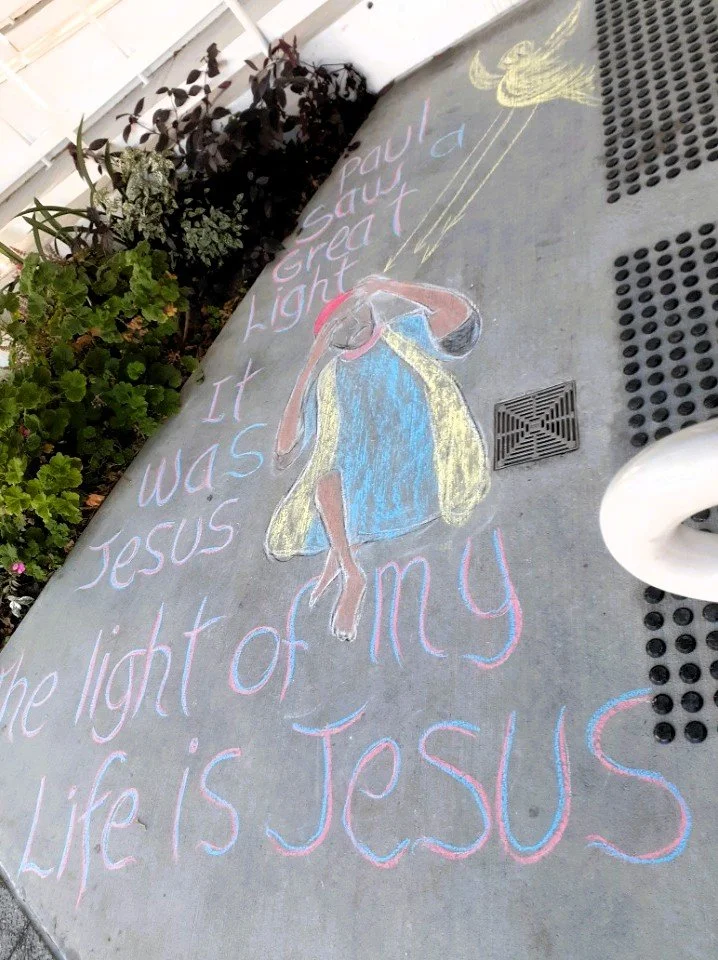 Paul
Saw a
Great
Light
It
was
Jesus
The light of my
Life is Jesus